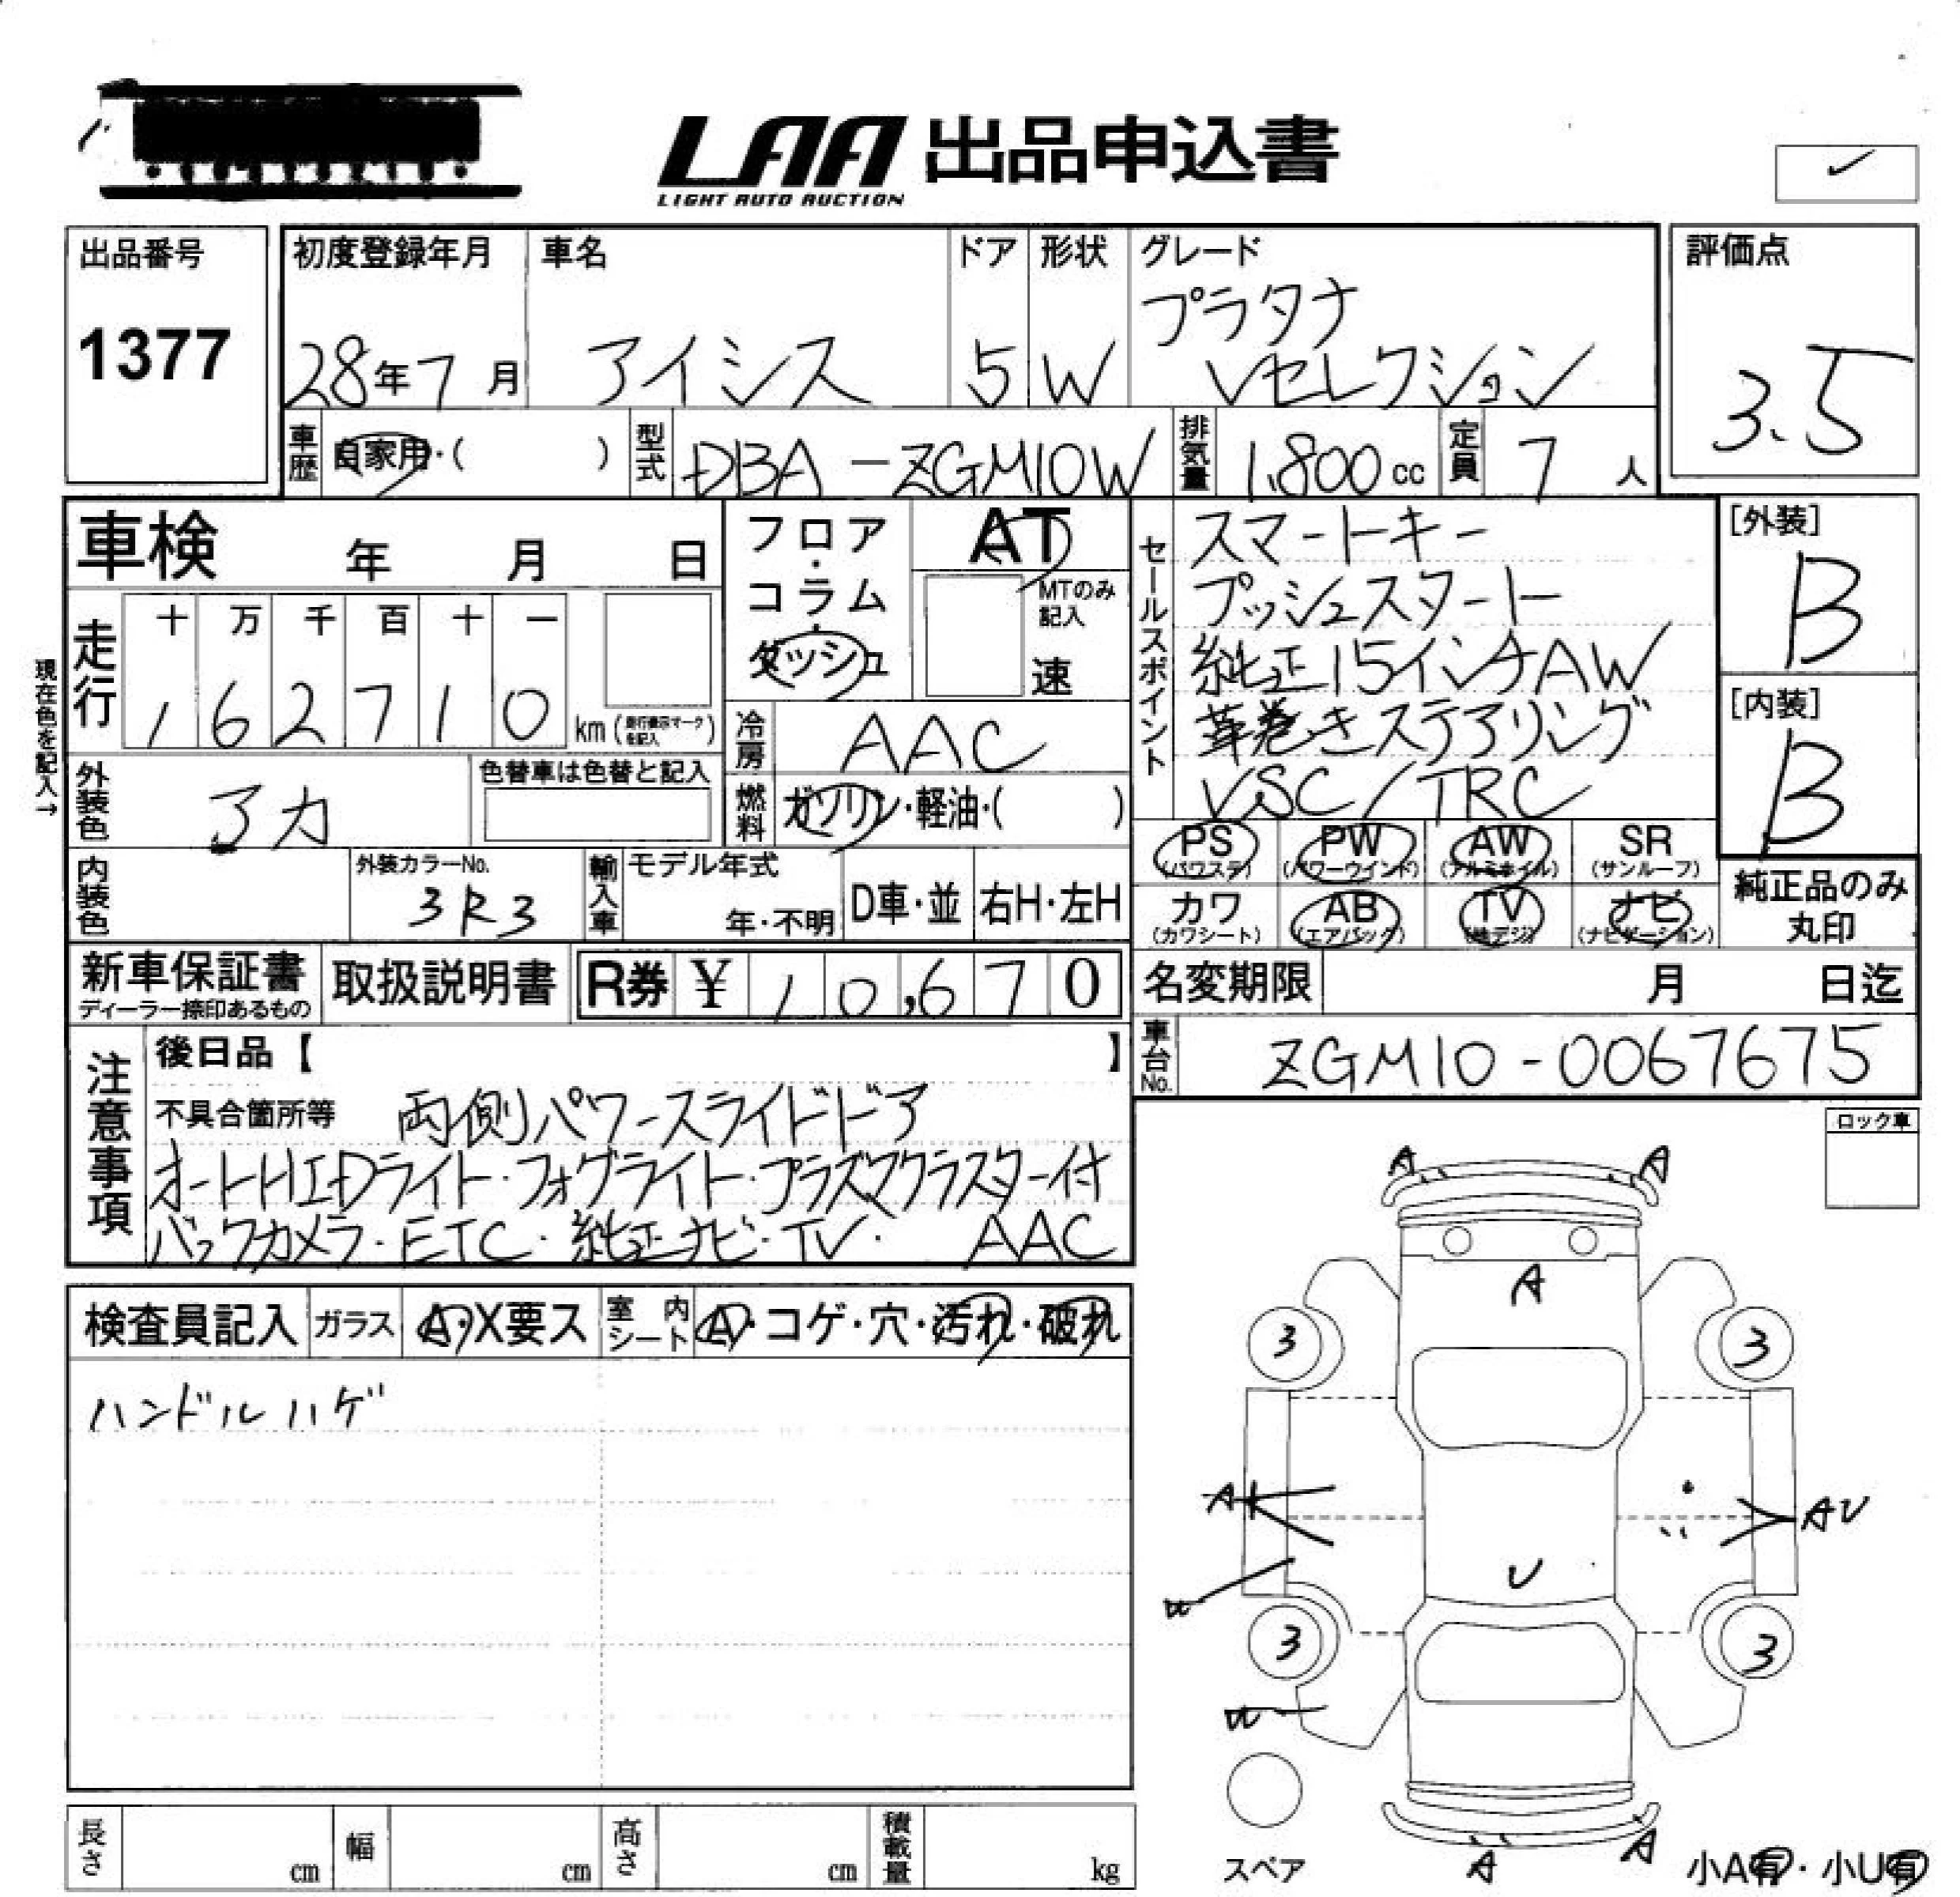 LAA 出品申込書
LIGHT AUTO AUCTION
✓
出品番号
1377
初度登録年月
28年7月
車名
アイシス
ドア
5
形状
W
グレード
プラタナ
Vセレクション
評価点
3.5
車歴
自家用・( )
型式
DBA-ZGM10W
排気量
1,800cc
定員
7人
車検 年 月 日
フロア・
コラム・
ダッシュ
AT
MTのみ
記入
速
現在色を記入→
走行
十 万 千 百 十 一
1 6 2 7 1 0 km (走行表示マークを記入)
冷房
AAC
外装色
アカ
色替車は色替と記入
燃料
ガソリン・軽油・( )
内装色
外装カラーNo.
3R3
輸入車
モデル年式
年・不明
D車・並
右H・左H
セールスポイント
スマートキー
プッシュスタート
純正15インチAW
革巻きステアリング
VSC/TRC
[外装]
B
[内装]
B
PS (パワステ)
PW (パワーウインド)
AW (アルミホイル)
SR (サンルーフ)
カワ (カワシート)
AB (エアバック)
TV (地デジ)
ナビ (ナビゲーション)
純正品のみ
丸印
新車保証書
ディーラー捺印あるもの
取扱説明書
R券 ¥ 10,670
名変期限 月 日迄
車台No.
ZGM10-0067675
注意事項
後日品【 】
不具合箇所等 両側パワースライドドア
オートHIDライト・フォグライト・プラズマクラスター付
バックカメラ・ETC・純正ナビ・TV・ AAC
ロック車
検査員記入
ガラス A・X要ス
室内シート A・コゲ・穴・汚れ・破れ
ハンドルハゲ
A A
A
3 3
A AU
U
W
3 3
W
スペア
A A
小A有・小U有
長さ cm
幅 cm
高さ cm
積載量 kg